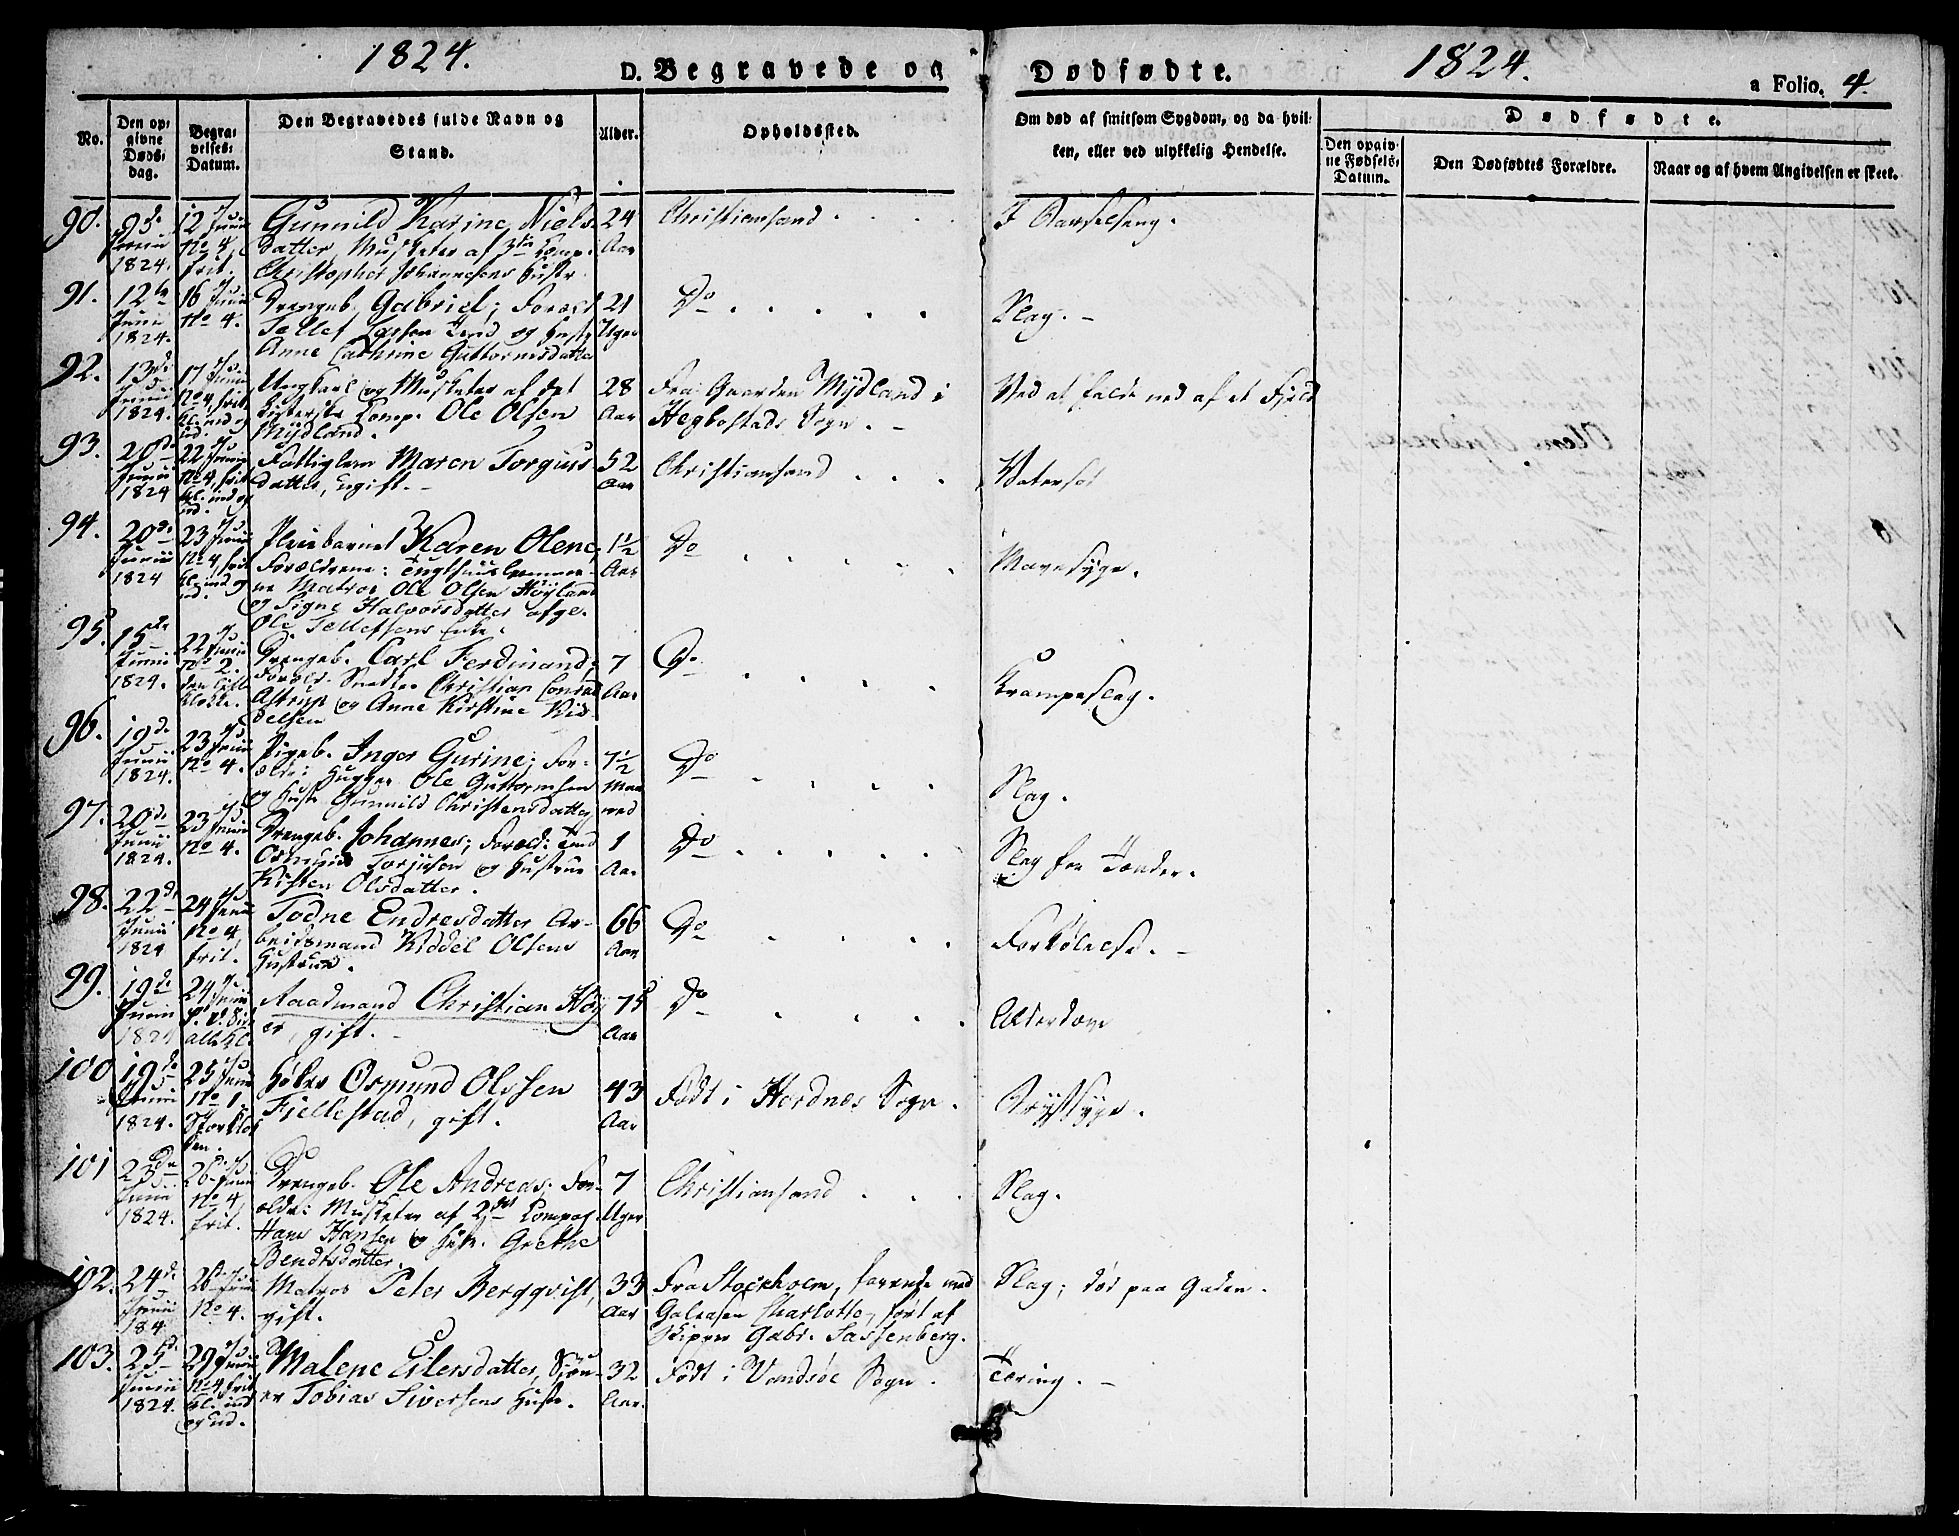 1824.
D. Begravede og
Dødfødte.
1824.
a Folio. 4.
No.
Den op-
givne
Døds-
dag.
Begra-
velses-
Datum.
Den Begravedes fulde Navn og
Stand.
Alder.
Opholdssted.
Om død af smitsom Sygdom, og da hvil-
ken, eller ved ulykkelig Hendelse.
Dødfødte.
Den opgiv-
ne Fødsels-
Datum.
Den Dødfødtes Forældre.
Naar og af hvem Angivelsen er skeet.
90. 9de Junii 1824. 12 Junii No 4, frit.
Gunnild Karine Niels-
datter, Musketer af 3die Comp.
Christopher Johannesens Hustr.
24 Aar
Christiansand
I Barselseng.
91. 12te Junii 1824. 16 Junii No 4.
Drengeb. Gabriel; Foræld
Tellef Larsen Tend og Hustr
Anne Cathrine Guttormsdatter
21 Uger
Do
Slag.
92. 13de Junii 1824. 17 Junii No 4, frit Kl. ind og ud.
Ungkarl og Musketer af det
Comp. Ole Olsen
Mydland.
28 Aar
Fra Gaarden Mydland i
Hegbostads Sogn.
Ved at falde ned af et Fjeld
93. 20de Junii 1824 22 Junii No 4, frit Kl. ind og ud.
Fattiglem Maren Torgius-
datter, ugift.
52 Aar
Christiansand
Vatersot
94. 20de Junii 1824 23 Junii No 4, frit Kl. ind og ud.
Pleiebarnet Karen Olene,
Forældrene: Tugthuuslemmer-
ne Matros Ole Olsen Höyland
og Signe Halvorsdatter afg.
Ole Tellefsens Enke.
1½ Aar
Do
Mavesyge.
95. 15de Junii 1824. 22 Junii No 2. den lille Klokke.
Drengeb. Carl Ferdinand;
Foræld. Snedker Christian Conrad
Astrup og Anne Kirstine Kid-
delsen
7 Aar
Do
Krampeslag.
96. 19de Junii 1824. 23 Junii No 4.
Pigeb. Inger Gurine; For-
ældre: Hugger Ole Guttormsen
og Hustr Gunnild Christensdatter
7½ Maa
ned
Do
Slag.
97. 20de Junii 1824. 23 Junii No 4.
Drengeb. Johannes; Foræld: Tend
Osmund Torjusen og Hustrue
Kirsten Olsdatter.
1 Aar
Do
Slag fra Tænder.
98. 22de Junii 1824 24 Junii No 4 frit.
Todne Endresdatter Ar-
beidsmand Kiddel Olsens
Hustrue.
66 Aar
Do
Forkölelse.
99. 19de Junii 1824 24 Junii
Raadmand Christian Höy
er, gift.
75 Aar
Do
Alderdom
100 19de Junii 1824. 25 Junii No 1. Storklok
ken.
Osmund Olssen
Fjellestad, gift.
43 Aar
Födt i Hordnes Sogn.
Brystsyge.
101 23de Junii 1824. 26 Junii No 4 frit.
Drengeb. Ole Andreas; For-
ældr: Musketer af 2det Compag.
Hans Hansen og Hustr. Grethe
Bendtsdatter.
7 Uger
Christiansand
Slag.
102. 24de Junii 184 26 Junii No 4.
Matros Peter Bergqvist,
gift.
33 Aar
Fra Stockholm, farende med
Galeasen Charlotte, fört af
Skipper Gabr. Sassenberg.
Slag; död paa Gaden.
103. 25de Junii 1824. 29 Junii No 4, frit Kl. ind og ud.
Malene Eilersdatter, Skön-
er Tobias Siversens Hustr.
32 Aar.
Födt i Vandsöe Sogn.
Tæring.